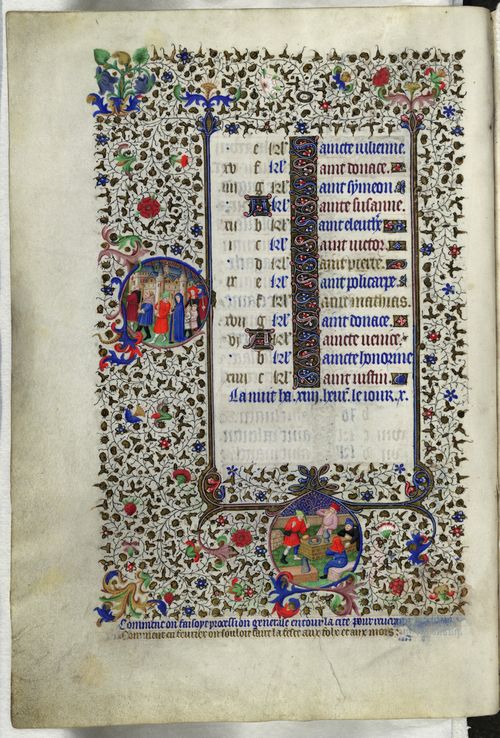 e kl' Saincte iulienne.
xv f kl' Saint donace.
iiii g kl' Saint symeon.
A kl' Saincte susanne.
xii b kl' Saint eleuth'e
ii c kl' Saint victor.
d kl' Saint pierre.
ix e kl' Saint policarpe
f kl' Saint mathias.
xvii g kl' Saint donace.
vi A kl' Saincte venice.
b kl' Saincte honorine
xiiii c kl' Saint iustin.
La nuit ha. xiiii. heur'. le iour. x.
Comment on faisoyt procession generale entour la cite pour
Comment en feurier on souloit faire la feste aux folz et aux mors.